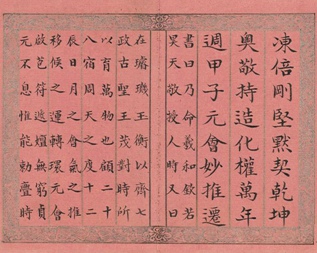 凍倍剛堅默契乾坤
奥敬持造化權萬年
週甲子元會妙推遷
書曰乃命羲和欽若
昊天敬授人時又曰
在璿璣玉衡以齊七
政古聖王茂對時所
以育萬物也顧二十
八宿周天之度十二
辰日月之會氣之推
移候之運轉環元會
啟苞符遞嬗無窮貞
元不息惟能勅疊時